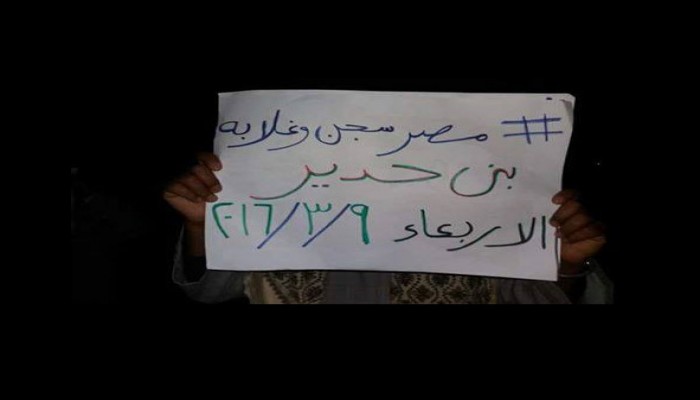 # مصر سجن وغلابه
بنى حدير
الاربعاء ٢٠١٦/٣/٩